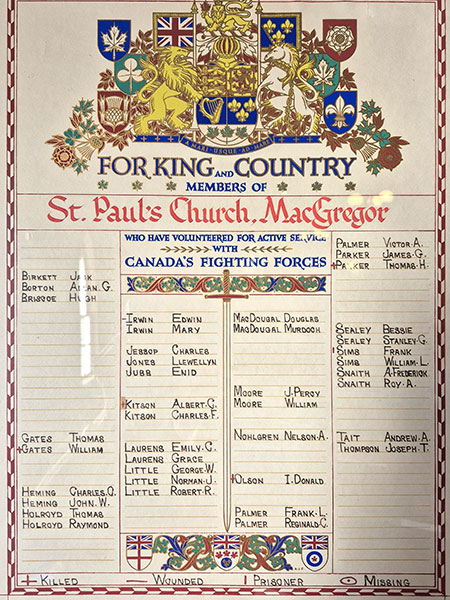 A MARI USQUE AD MARE
FOR KING AND COUNTRY
MEMBERS OF
St. Paul's Church, MacGregor
WHO HAVE VOLUNTEERED FOR ACTIVE SERVICE
WITH
CANADA'S FIGHTING FORCES
Birkett Jack
Borton Allan.G.
Briscoe Hugh
Gates Thomas
Gates William
Heming Charles.O.
Heming John.W.
Holroyd Thomas
Holroyd Raymond
Irwin Edwin
Irwin Mary
Jessop Charles
Jones Llewellyn
Jubb Enid
Kitson Albert.G.
Kitson Charles.F.
Laurens Emily.C.
Laurens Grace
Little George.W.
Little Norman.J.
Little Robert.R.
MacDougal Douglas
MacDougal Murdoch
Moore J.Percy
Moore William
Nohlgren Nelson.A.
Olson I.Donald
Palmer Frank.L.
Palmer Reginald.C.
Palmer Victor.A.
Parker James.G.
Parker Thomas.H.
Sealey Bessie
Sealey Stanley.G.
Sims Frank
Sims William.L.
Snaith A.Frederick
Snaith Roy.A.
Tait Andrew.A.
Thompson Joseph.T.
Killed Wounded Prisoner Missing